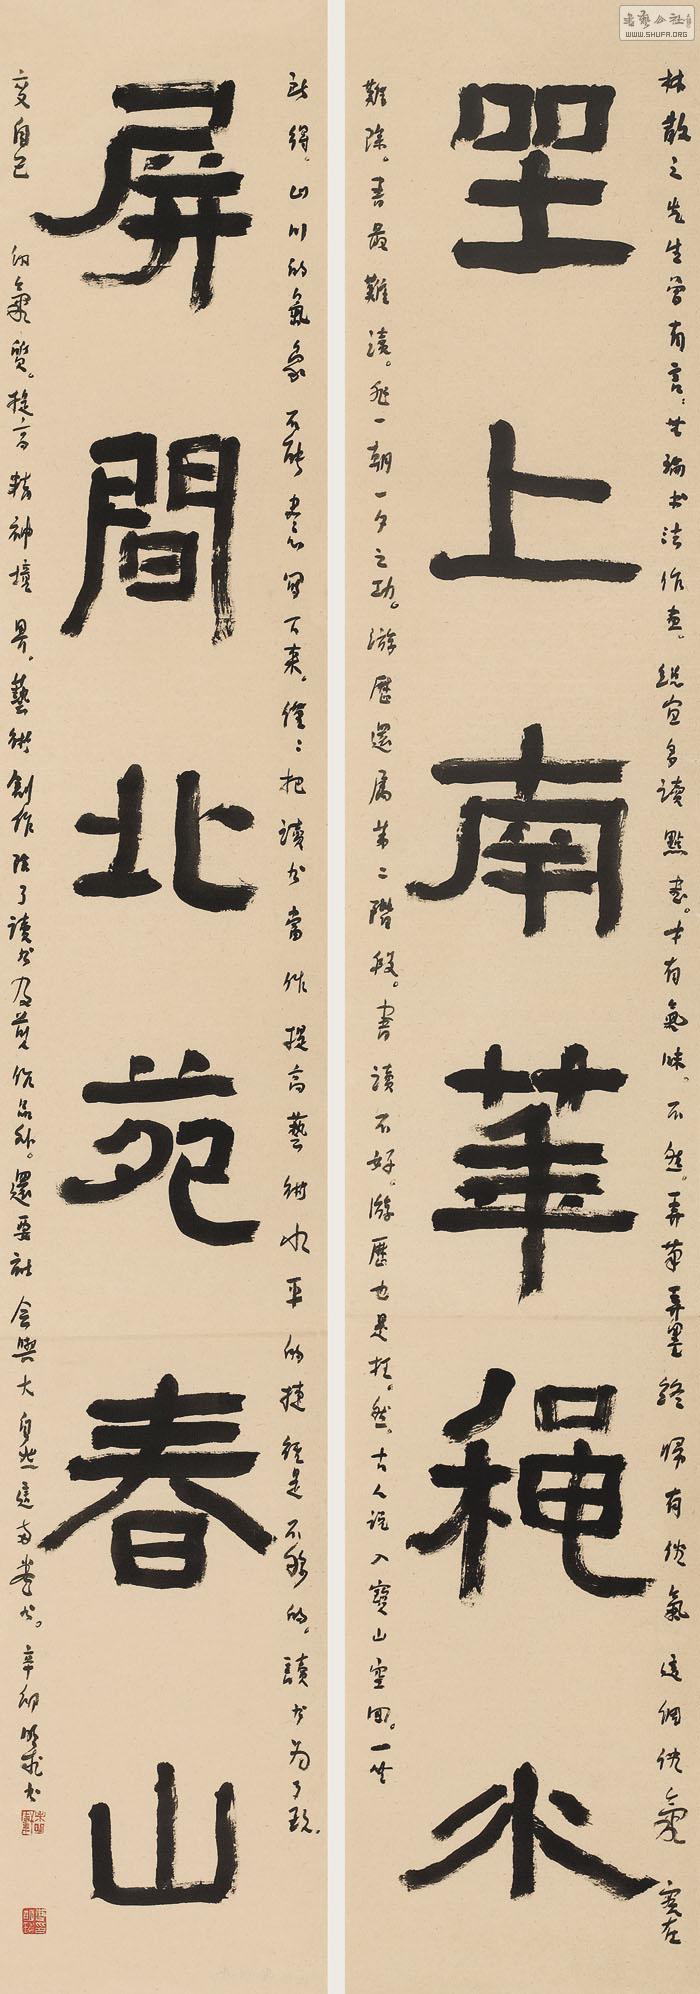 林散之先生曾有言：無論书法作畫。總宜多讀點書。才有氣味。不然。弄筆弄墨終歸有俗氣這個俗氣實在
坐上南華龝水
難除。書最難讀。非一朝一夕之功。游歷還屬第二階段。書讀不好。游歷也是枉。然。古人说入寶山空回。一無
所得。山川的氣象不能盡寫下來。僅僅把讀书當作提高藝術水平的捷徑是不夠的。讀书为了改
屏間北苑春山
變自己的氣質。提高精神境界。藝術創作除了讀书及作品外。還要社會與大自然這兩卷书。辛卯书
WWW.SHUFA.ORG